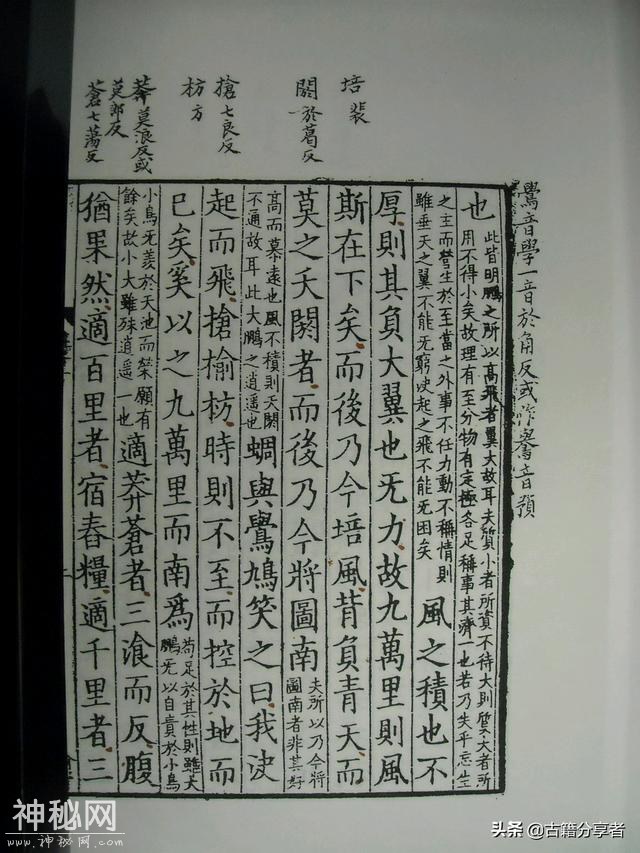 鷽音學一音於角反或作鸴音預
培裴
閼於葛反
搶七良反
枋方
莽莫浪反或
莫郎反
蒼七蕩反
也
此皆明鵬之所以高飛者翼大故耳夫質小者所資不待大則質大者所
用不得小矣故理有至分物有定極各足稱事其濟一也若乃失乎忘生
之主而營生於至當之外事不任力動不稱情則
雖垂天之翼不能无窮决起之飛不能无困矣
風之積也不
厚則其負大翼也无力故九萬里則風
斯在下矣而後乃今培風背負青天而
莫之夭閼者而後乃今將圖南
夫所以乃今將
圖南者非其好
高而慕遠也風不積則夭閼
不通故耳此大鵬之逍遥也
蜩與鷽鳩笑之曰我决
起而飛搶榆枋時則不至而控於地而
已矣奚以之九萬里而南爲
苟足於其性則雖大
鵬无以自貴於小鳥
小鳥无羡於天池而榮願有
餘矣故小大雖殊逍遥一也
適莽蒼者三飡而反腹
猶果然適百里者宿舂糧適千里者三
神秘网
www.神秘网.com
头条 @古籍分享者